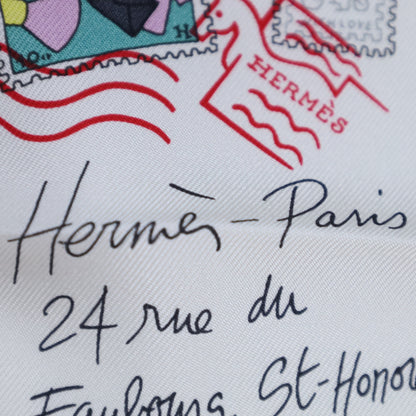 HERMÈS
Hermès-Paris
24 rue du
Faubourg St-Honor